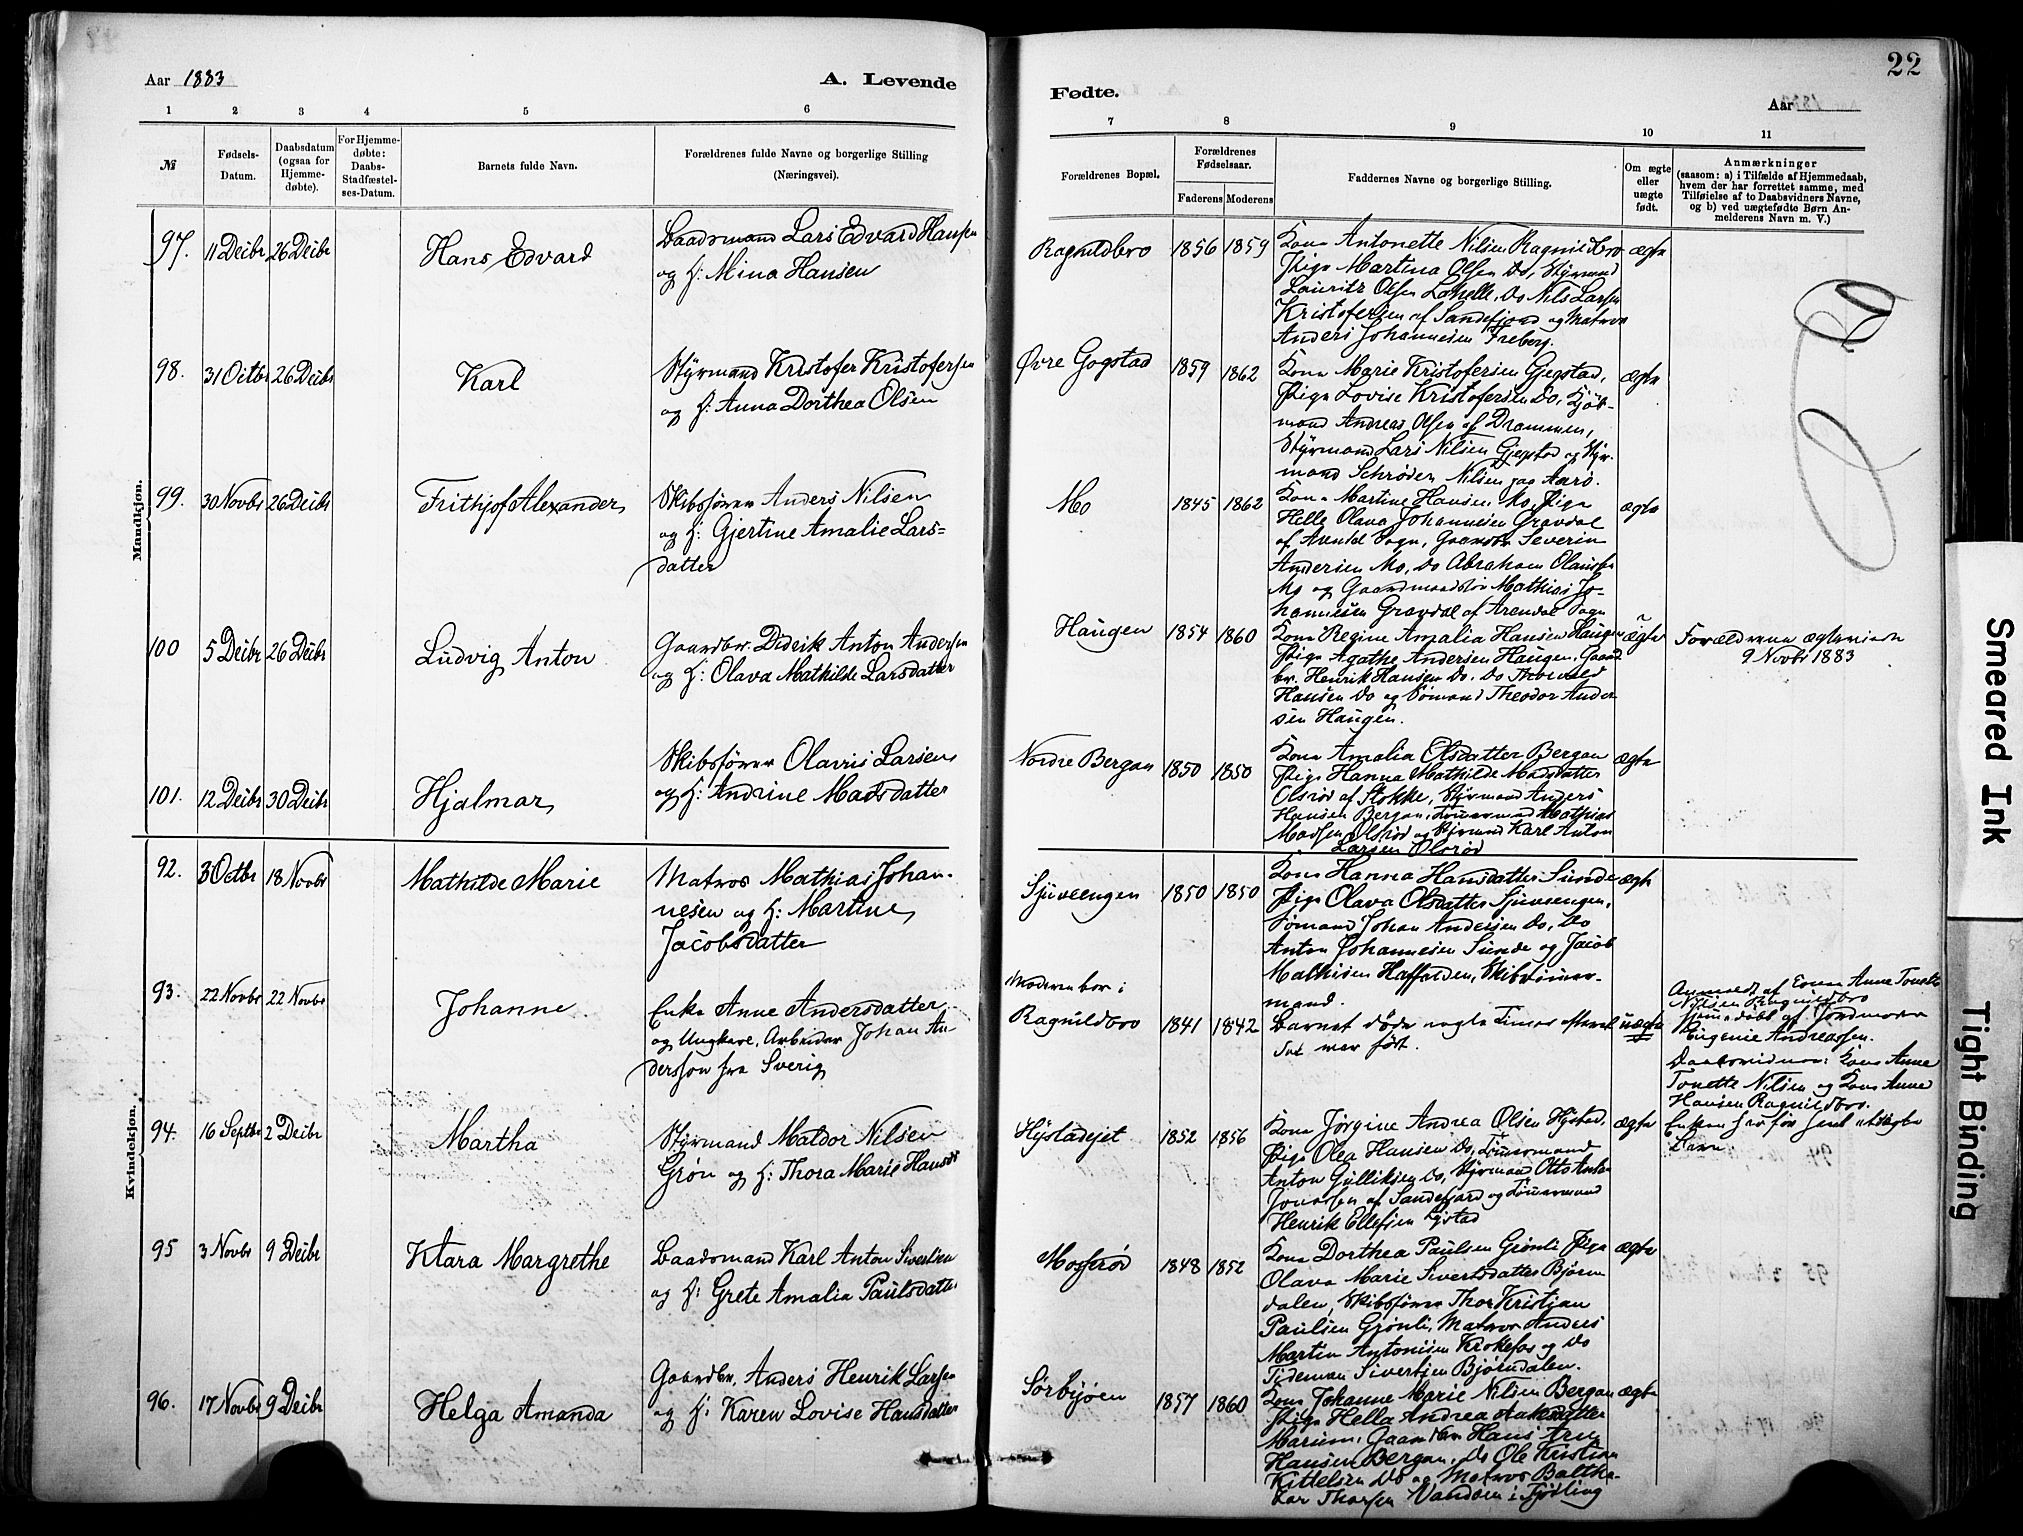 Aar 1883
A. Levende
1 2 3 4 5 6
№
Fødsels-
Datum.
Daabsdatum
(ogsaa for
Hjemme-
døbte).
For Hjemme-
døbte:
Daabs-
Stadfæstel-
ses-Datum.
Barnets fulde Navn.
Forældrenes fulde Navne og borgerlige Stilling
(Næringsvei).
Mandkjøn.
97. 11 Decbr 26 Decbr Hans Edvard
Baadsmand Lars Edvard Hansen
og H: Mina Hansen
98. 31 Octbr 26 Decbr Karl
Styrmand Kristofer Kristofersen
og H: Anna Dorthea Olsen
99. 30 Novbr 26 Decbr Frithjof Alexander
Skibsfører Anders Nilsen
og H: Gjertine Amalie Lars=
datter
100 5 Decbr 26 Decbr Ludvig Anton
Gaardbr. Didrik Anton Andersen
og H: Olava Mathilde Larsdatter
101. 12 Decbr 30 Decbr Hjalmar
Skibsfører Olavus Larsen
og H: Andrine Madsdatter
Kvindekjøn.
92. 3 Octbr 18 Novbr Mathilde Marie
Matros Mathias Johan-
nesen og H: Martine
Jacobsdatter
93. 22 Novbr 22 Novbr Johanne
Enke Anne Andersdatter
og Ungkarl, Arbeider Johan An
dersson fra Sverig
94. 16 Septbr 2 Decbr Martha
Styrmand Maldor Nilsen
Grøn og H: Thora Marie Hansdr
95 3 Novbr 9 Decbr Klara Margrethe
Baadsmand Karl Anton Sivertsen
og H: Grete Amalia Paulsdatter
96. 17 Novbr 9 Decbr Helga Amanda
Gaardbr. Anders Henrik Larsen
og H: Karen Lovise Hansdatter
22
Fødte.
Aar
7 8 9 10 11
Forældrenes Bopæl.
Forældrenes
Fødselsaar.
Faderens Moderens
Faddernes Navne og borgerlige Stilling.
Om ægte
eller
uægte
født.
Anmærkninger
(saasom: a) i Tilfælde af Hjemmedaab,
hvem der har forrettet samme, med
Tilføielse af to Daabsvidners Navne,
og b) ved uægtefødte Børn An-
melderens Navn m. V.)
Ragnildbro 1856 1859 ægte
Kone Antonette Nilsen Ragnildbro
Pige Martina Olsen Do, Styrmand
Lauritz Olsen Lahelle, Do Nils Larsen
Kristofersen af Sandefjord og Matros
Anders Johannesen Freberg.
Øvre Gogstad 1859 1862 ægte
Kone Marie Kristofersen Gjegstad,
Pige Lovise Kristofersen Do, Kjøb-
mand Andreas Olsen af Drammen,
Styrmand Lars Nilsen Gjegstad og Styr-
mand Schrøder Nilsen paa Aarø.
Mo 1845 1862 ægte
Kone Martine Hansen Mo, Pige
Helle Olava Johannesen Gravdal
af Arendal Sogn, Gaardbr Severin
Andersen Mo, Do Abraham Olausen
Mo og Gaardmandssøn Mathias Jo-
hannesen Gravdal af Arendal Sogn
Haugen 1854 1860 ægte
Kone Regine Amalia Hansen Haugen
Pige Agathe Andersen Haugen, Gaard
br. Henrik Hansen Do. Do Thorvald
Hansen Do og Sømand Theodor Ander
sen Haugen.
Forældrene ægteviede
9 Novbr 1883
Nordre Bergan 1850 1850 ægte
Kone Amalia Olsdatter Bergan
Pige Hanna Mathilde Madsdatter
Olsrød af Stokke, Styrmand Anders
Hansen Bergan, Tømmermand Mathias
Madsen Olsrød og Styrmand Karl Anton
Larsen Olsrød
Sjuveengen 1850 1850 ægte
Kone Hanna Hansdatter Sunde
Pige Olava Olsdatter Sjuveengen,
Sømand Johan Andersen Do, Do
Anton Johannesen Sunde og Jacob
Mathisen Haslelien, Skibstømmer-
mand.
Moderen bor i
Ragnildbro 1841 1842 uægte
Barnet døde nogle Timer efterat
det var født.
Anmeldt af Kone Anne Tonette
Nilsen Ragnildbro
Hjemmedøbt af Jordmoder
Eugenie Andreassen.
Daabsvidner: Kone Anne
Tonette Nilsen og Kone Anne
Hansen Ragnildbro.
Enken har før havt et uægte
Barn
Hystadejet 1852 1856 ægte
Kone Jørgine Andrea Olsen Hystad,
Pige Olea Hansen Do, Tømmermand
Anton Gulliksen Do, Styrmand Otto Anton
Jonassen af Sandefjord og Tømmermand
Henrik Ellefsen Hystad
Mosserød 1848 1852 ægte
Kone Dorthea Paulsen Grønli Pige
Olava Marie Sivertsdatter Bjørn
dalen, Skibsfører Thor Kristian
Paulsen Grønli, Matros Anders
Martin Antonisen Krokefos og Do
Tideman Sivertsen Bjørndalen.
Sørbyøen 1857 1860 ægte
Kone Johanne Marie Nilsen Bergan
Pige Hella Andrea Aakesdatter
Marum, Gaardbr Hans Arn
Hansen Bergan, Do Ole Kristian
Kittelsen Do og Matros Baltha-
sar Thorsen Vandøen i Tjølling
Smeared Ink
Tight Binding